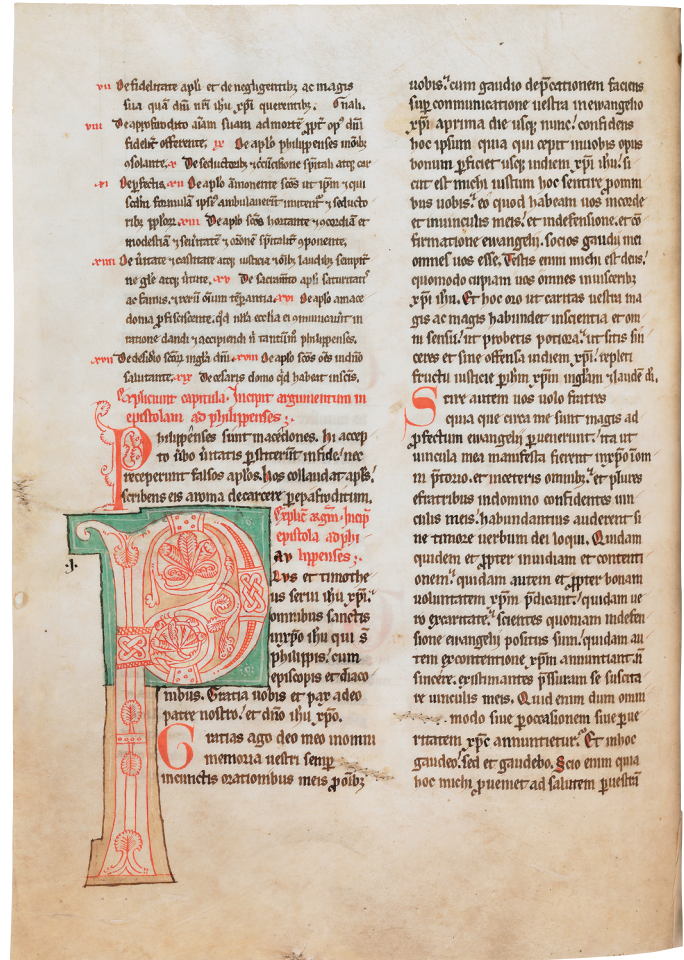 vii De fidelitate apli et de negligentibꝫ ac magis
sua quā dn̄i nr̄i ihu xpi querentibꝫ.
viii De aprofundito aīam suam ad morte ꝓpt̄ opꝰ dn̄i
fidelit̄ offerente, ix De aplo philippenses
ꝯsolante. x De seductoribꝫ ⁊ ꝯcisione sp̄itali atqꝫ car
xi De ꝑfectis. xii De aplo āmonente sc̄os ut ipm̄ ⁊ qui
formulam ipsiꝰ ambulauerit̄ imitent̄ ⁊ seducto
ribꝫ xiii De aplo sc̄os hortante ⁊ ꝯcordiā et
modestiam ⁊
xiiii De ūitate ⁊ castitate atqꝫ iusticia ⁊ laudibꝫ
ne glē atqꝫ ūtute. xv De sacram̄to apli saturitatꝭ
ac famis. xvi De aplo amace
doma ꝓficiscente. qd̄ nlla eccl̄ia ei cōmunicauit in
ratione dandi ⁊ accipiendi n̄ tantūm̄ philippenses.
xvii De desid̄io sc̄oꝝ in gl̄a dn̄i. xviii De aplo sc̄os
salutante. xix De cesaris domo qd̄ habeat in sc̄is.
Expliciunt capitula. Incipit argumentum in
epistolam ad philippenses;.
Philippenses sunt macedones. hi accep
to ūbo ūitatis ꝑstiterūt in fide. nec
receperunt falsos apl̄os. hos collaudat apl̄s.
scribens eis aroma de carcere ꝑ epafroditum.
Explic̄ argm̄. Incip̄
epistola ad phi
au lippenses;.
Lus et timothe
us serui ihu xpi.
omnibus sanctis
in xp̄o ihu qui s̄
philippis. cum
episcopis et diaco
nibus. Gratia uobis et pax a deo
patre nostro. et dn̄o ihu xp̄o.
Gratias ago deo meo in omni
memoria uestri semꝑ
in cunctis orationibus meis ꝓ oībꝫ
uobis. cum gaudio dep̄cationem faciens
suꝑ communicatione uestra in euangelio
xp̄i a prima die usqꝫ nunc. confidens
hoc ipsum quia qui cepit in uobis opus
bonum ꝑficiet usqꝫ in diem xp̄i ihu. si
cut est michi iustum hoc sentire pōmni
bus uobis. eo quod habeam uos in corde
et in uinculis meis. et in defensione. et cō
firmatione ewangelii. socios gaudii mei
omnes uos esse. Testis enim michi est deus.
quomodo cupiam uos omnes in uisceribꝫ
xp̄i ihu. Et hoc oro ut caritas uestra ma
gis ac magis habundet in scientia et om
ni sensu. ut probetis potiora. ut sitis sin
ceres et sine offensa in diem xp̄i. repleti
fructu iusticie ꝑ ihm̄ xpm̄ in gl̄am ⁊ laudē di.
Scire autem uos uolo fratres
quia que circa me sunt magis ad
ꝓfectum ewangelii ꝑuenerunt. ita ut
uincula mea manifesta fierent in xp̄o in om
ni p̄torio. et in ceteris omnibꝫ. et plures
e fratribus in domino confidentes uin
culis meis. habundantius auderent si
ne timore uerbum dei loqui. Quidam
quidem et ꝓpter inuidiam et contenti
onem. quidam autem et ꝓpter bonam
uoluntatem xp̄m p̄dicant. quidam ue
ro ex caritate. scientes quoniam in defen
sione ewangelii positus sum. quidam au
tem ex contentione. xp̄m annuntiant. n̄
sincere. existimantes p̄ssuram se suscita
re uinculis meis. Quid enim dum omni
modo siue ꝑ occasionem siue ꝑ ue
ritatem xp̄c annuntietur. Et in hoc
gaudeo. sed et gaudebo. Scio enim quia
hoc michi ꝓueniet ad salutem ꝑ uestrā